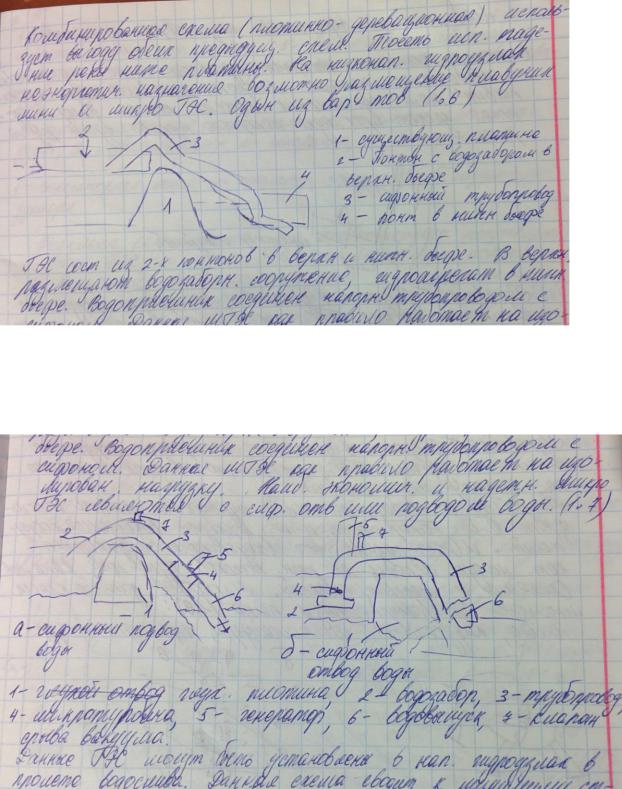 Комбинированная схема (плотинно-деревационная) исполь-
зует выгоду обеих предыдущ. схем. Тоесть исп. паде-
ние реки ниже плотины. На низконап. гидроузлах
неэнергетич. назначения возможно размещение плавучих
мини и микро ГЭС. Один из вар-тов (1.6)
2
3
1
4
1 - существующ. плотина
2 - Понтон с водозабором в
верхн. бьефе
3 - сифонный трубопровод
4 - понт в нижн бьефе
ГЭС сост из 2-х понтонов в верхн и нижн. бьефе. В верхн.
размещают водозаборн. сооружение, гидроагрегат в нижн
бьефе. Водоприемник соединен напорн трубопроводом с
сифоном. Данные МГЭС как правило работает на изо-
бьефе. Водоприемник соединен напорн трубопроводом с
сифоном. Данные МГЭС как правило работает на изо-
лирован. нагрузку. Наиб. экономич. и надежн. микро
ГЭС являются с сиф. отв или подводом воды. (1.7)
7
2
3
5
4
6
1
а - сифонный подвод
воды
5
7
4
2
3
6
б - сифонный
отвод воды
1 - глухой отвод глух. плотина, 2 - водозабор, 3 - трубопровод,
4 - микротурбина, 5 - генератор, 6 - водовыпуск, 7 - клапан
срыва вакуума.
Данные ГЭС могут быть установлены в нап. гидроузлах в
пролете водослива. Данная схема сводит к